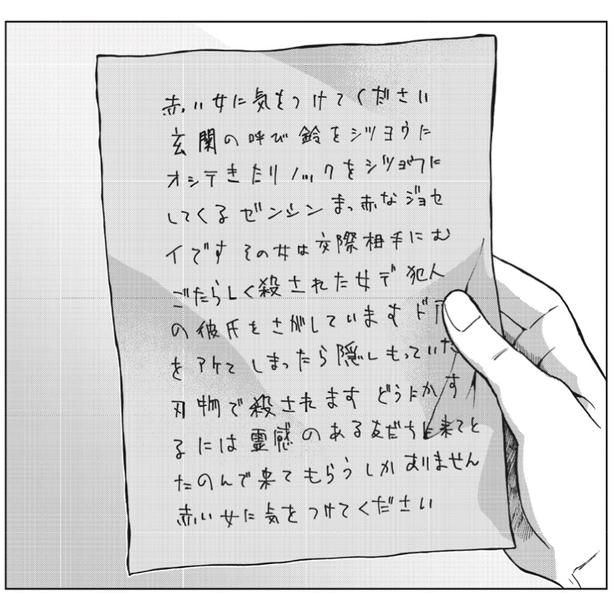 赤い女に気をつけてください
玄関の呼び鈴をシツヨウに
オシテきたりノックをシツヨウに
してくるゼンシンまっ赤なジョセ
イです その女は交際相手にむ
ごたらしく殺された女デ 犯人
の彼氏をさがしています ドア
をアケてしまったら隠しもっていた
刃物で殺されます どうにかす
るには霊感のある友だちに来てと
たのんで来てもらうしかありません
赤い女に気をつけてください